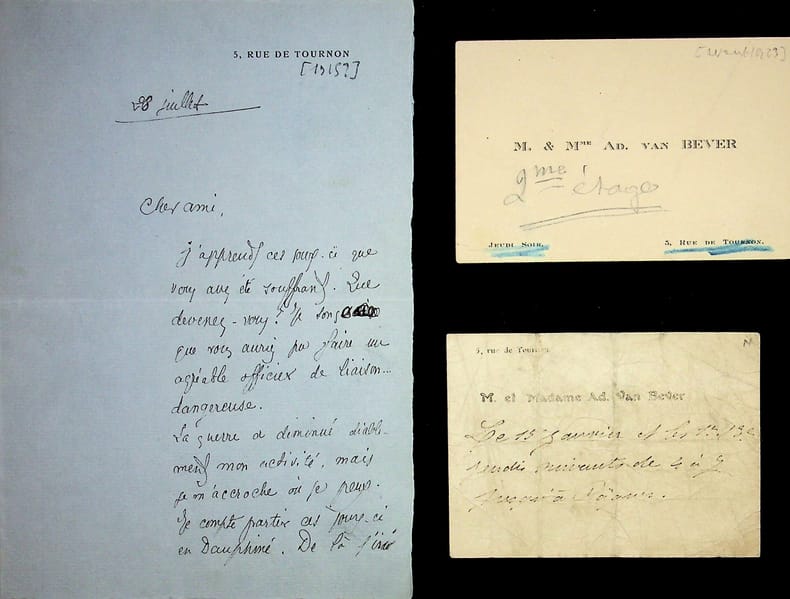 5, RUE DE TOURNON
[1915?]
28 juillet
Cher ami,
J'apprends ces jours-ci que
vous avez été souffrant. Que
devenez-vous ? Je
que vous auriez pu faire un
agréable officier de liaison...
dangereuse.
La guerre a diminué diable-
ment mon activité, mais
je m'accroche où je peux.
Je compte partir ces jours-ci
en Dauphiné. De là j'irai
M. & MME AD. VAN BEVER
2me étage
JEUDI SOIR.
5, RUE DE TOURNON.
5, rue de Tournon
M. et Madame Ad. Van Bever
Le 15 Janvier et les 1er, 3e
jeudis suivants de 4 à 7
jusqu'à Pâques.